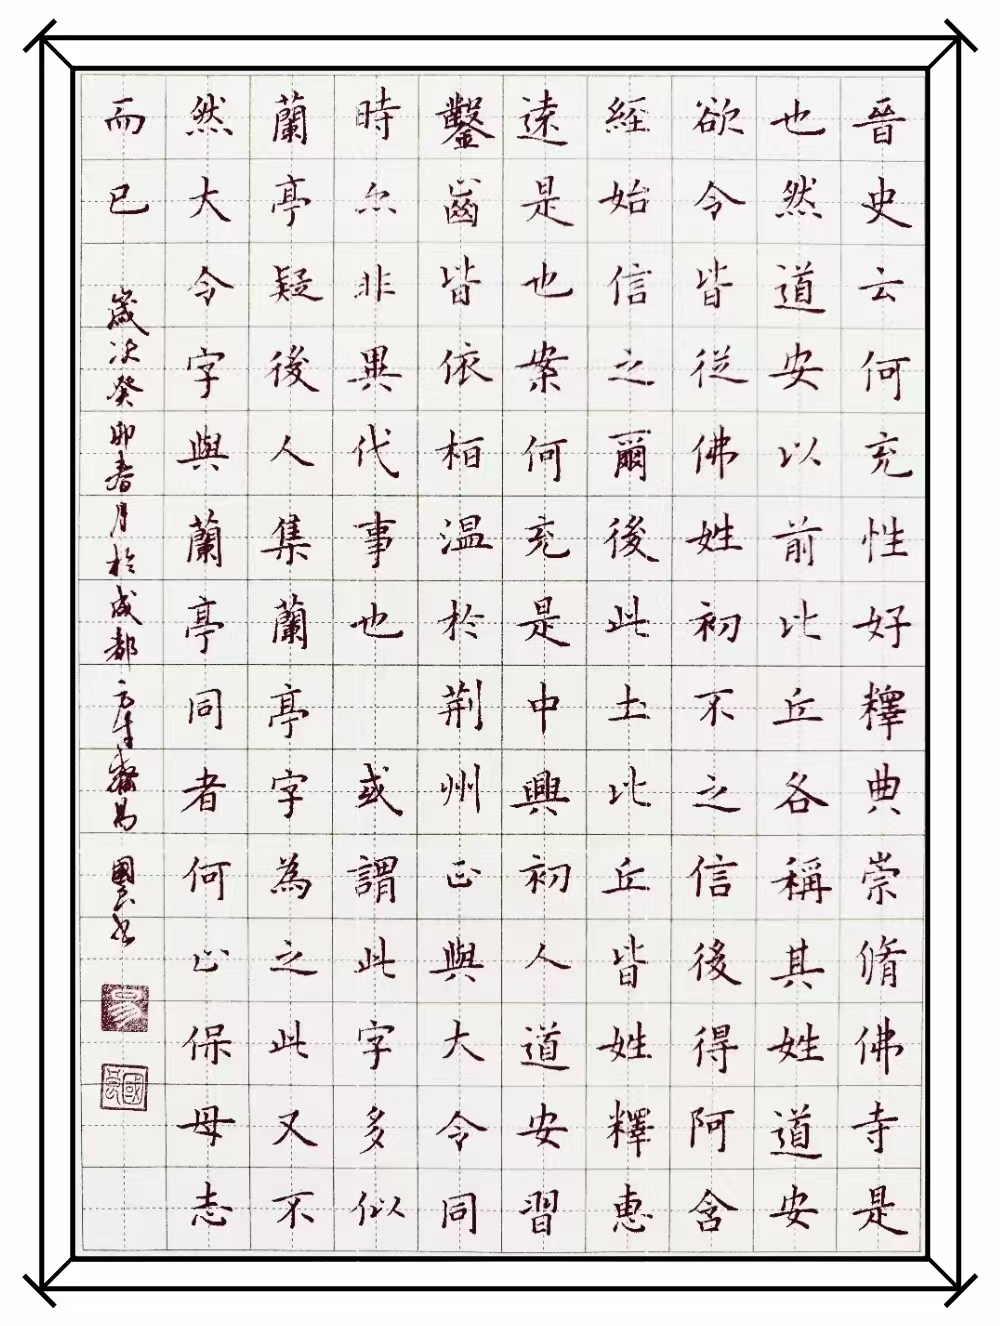 晉史云何充性好釋典崇脩佛寺是
也然道安以前比丘各稱其姓道安
欲令皆從佛姓初不之信後得阿含
經始信之爾後此土比丘皆姓釋惠
遠是也案何充是中興初人道安習
鑿齒皆依栢溫於荊州正與大令同
時尒非異代事也 或謂此字多似
蘭亭疑後人集蘭亭字為之此又不
然大令字與蘭亭同者何止保母志
而已
歲次癸卯春月於成都 易國
易
國